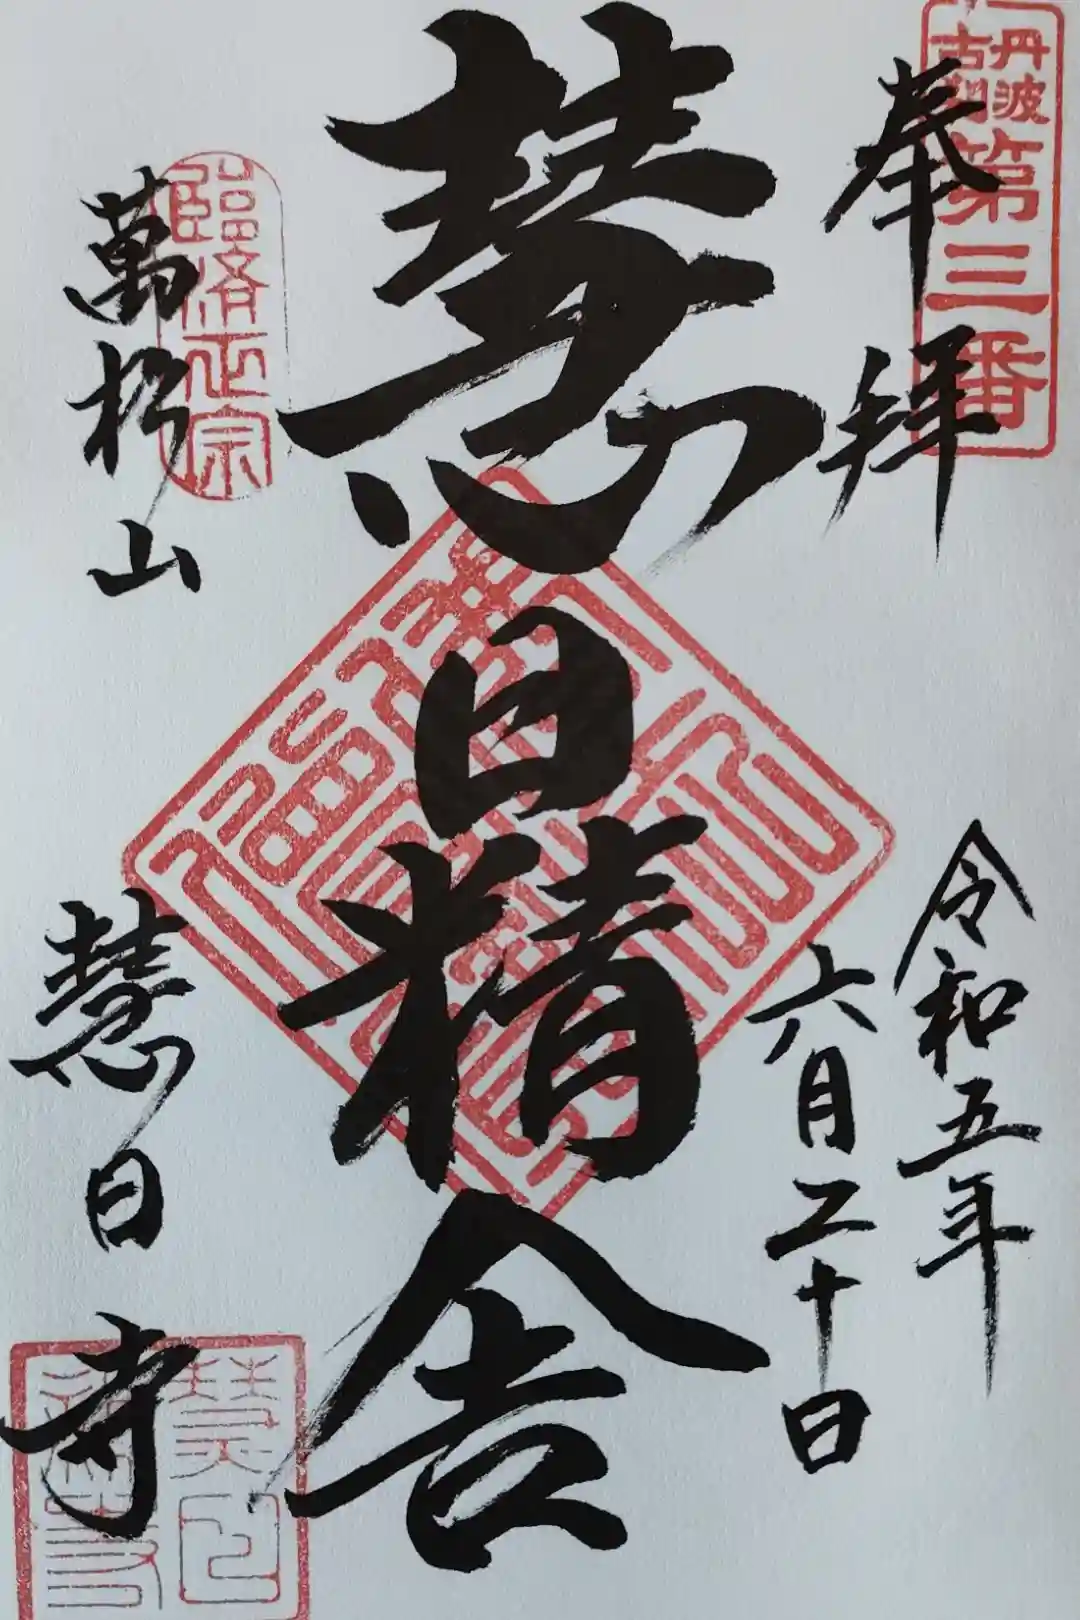 丹波
古刹
第三番
奉拝
令和五年
六月二十日
慧日精舎
臨済正宗
萬松山
慧日寺